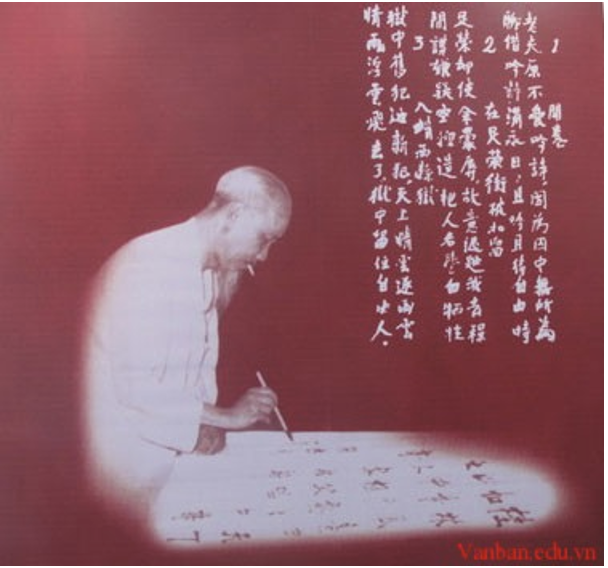 1 開卷
老夫原不愛吟詩,因為囚中無所為
聊借吟詩消永日,且吟且待自由時
2 在足榮街被扣留
足榮却使余蒙辱,故意遲遲我去程
間諜嫌疑空捏造,把人名譽白犧牲
3 入靖西縣獄
獄中舊犯迎新犯,天上晴雲逐雨雲
晴雨浮雲飛去了,獄中留住自由人。
Vanban.edu.vn